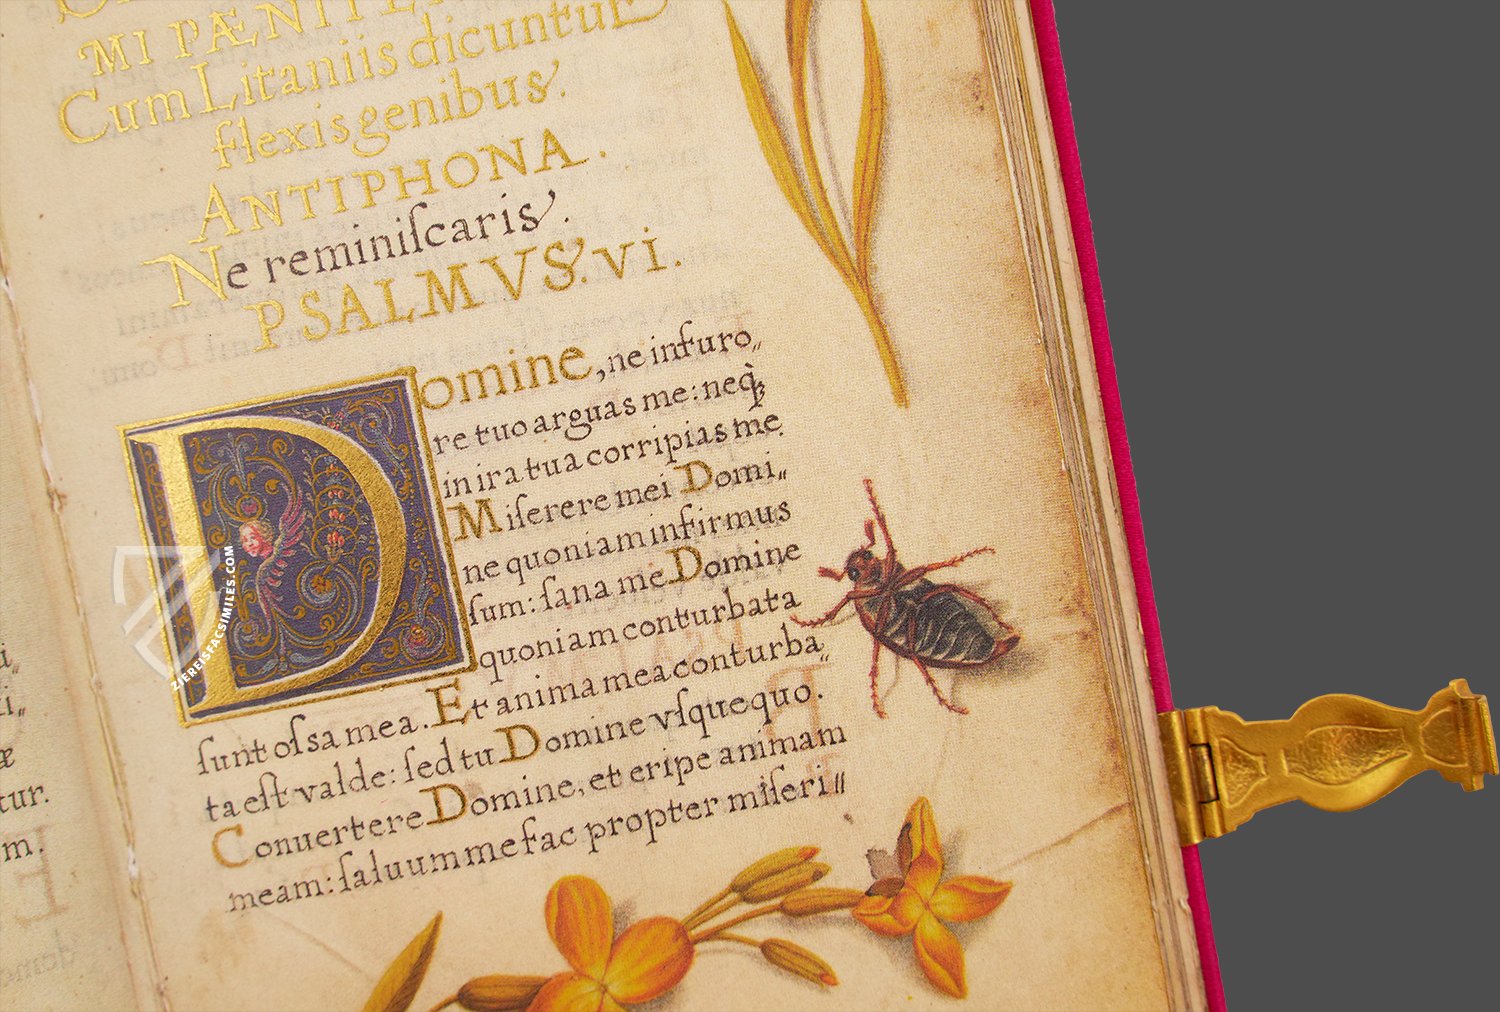 MI PÆNITEN
Cum Litaniis dicuntur
flexis genibus.
ANTIPHONA.
Ne reminiſcaris.
PSALMVS. VI.
Domine, ne in furo„
re tuo arguas me: neq̃;
in ira tua corripias me.
Miſerere mei Domi„
ne quoniam infirmus
ſum: ſana me Domine
quoniam conturbata
ſunt oſsa mea. Et anima mea conturba„
ta eſt valde: ſed tu Domine vſquequo.
Conuertere Domine, et eripe animam
meam: ſaluum me fac propter miſeri„
tur.
m.
ZIEREISFACSIMILES.COM